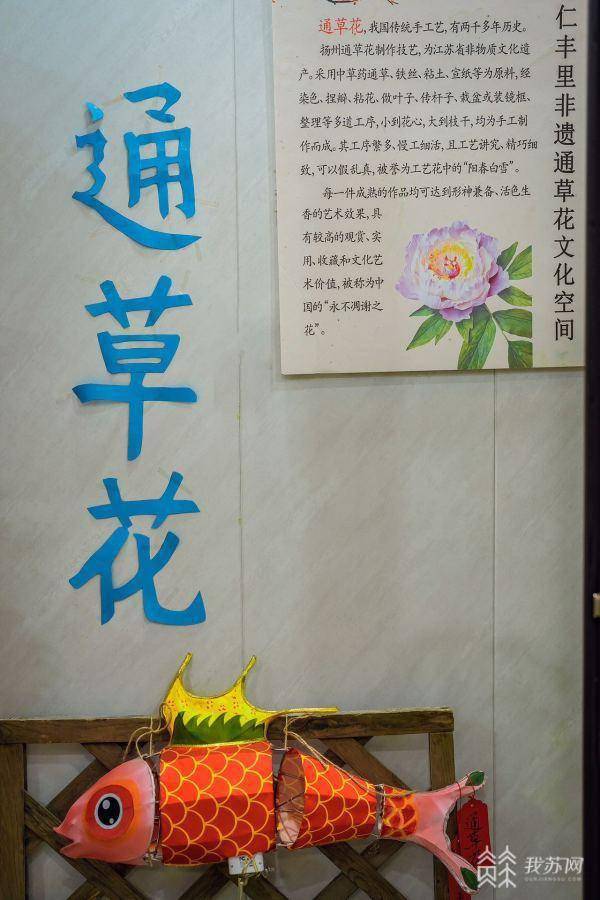 通草花
通草花,我国传统手工艺,有两千多年历史。
扬州通草花制作技艺,为江苏省非物质文化遗
产。采用中草药通草、铁丝、粘土、宣纸等为原料,经
染色、捏瓣、粘花、做叶子、传杆子、栽盆或装镜框、
整理等多道工序,小到花心,大到枝干,均为手工制
作而成。其工序繁多、慢工细活,且工艺讲究、精巧细
致,可以假乱真,被誉为工艺花中的“阳春白雪”。
每一件成熟的作品均可达到形神兼备、活色生
香的艺术效果,具
有较高的观赏、实
用、收藏和文化艺
术价值,被称为中
国的“永不凋谢之
花”。
仁丰里非遗通草花文化空间
通草
我苏网
OURJIANGSU.COM